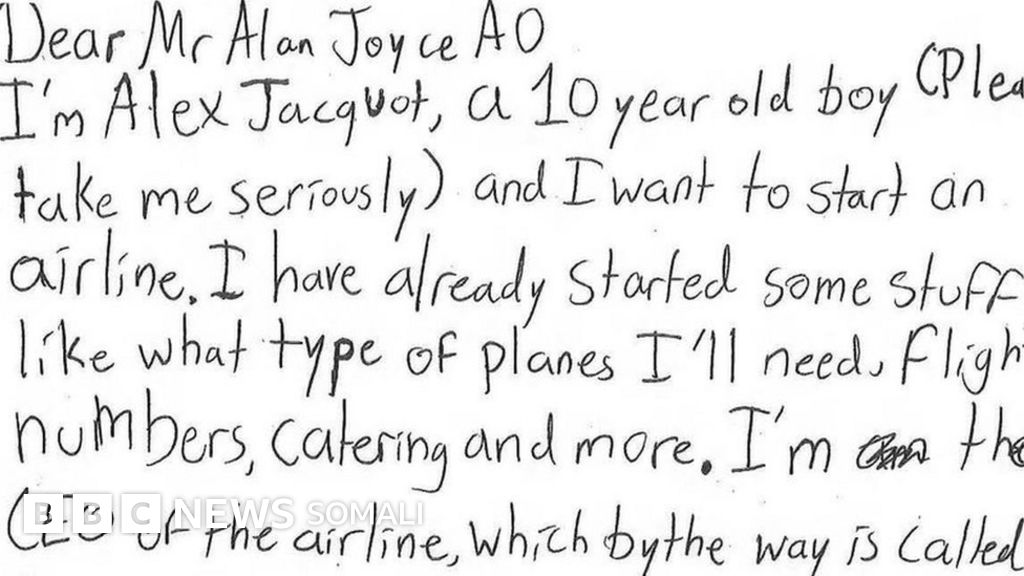 Dear Mr Alan Joyce AO
I'm Alex Jacquot, a 10 year old boy (Plea
take me seriously) and I want to start an
airline. I have already started some stuff
like what type of planes I'll need, fligh
numbers, catering and more. I'm the
CEO of the airline, which by the way is called
BBC NEWS SOMALI